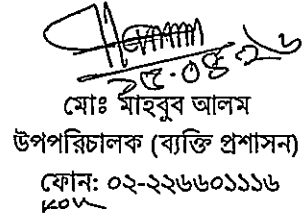 ২৫.০৪.২৬
মোঃ মাহবুব আলম
উপপরিচালক (ব্যক্তি প্রশাসন)
ফোন: ০২-২২৬৬০১১১৬